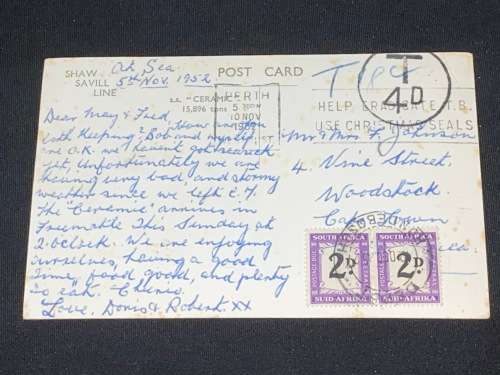 At Sea
5th Nov. 1952
SHAW
SAVILL
LINE
POST CARD
s.s. "CERAMIC"
15,896 tons
PERTH
5
10 NOV
HELP ERADICATE T.B.
USE CHRISTMAS SEALS
T
4D
Dear May & Fred, how are you
both keeping? Bob and myself
are O.K. we havent got seasick
yet, Unfortunately we are
having very bad and stormy
weather since we left C.T.
The "Ceramic" arrives in
Freemantle This Sunday at
2. o'clock. We are enjoying
ourselves, having a good
time, food good, and plenty
to eat. Cheerio.
Love. Doris & Robert. xx
Mr. Mrs. F. Johnson
4. Vine Street.
Woodstock
Cape Town
SOUTH AFRICA
2D
SUID-AFRIKA
SOUTH AFRICA
2D
SUID-AFRIKA